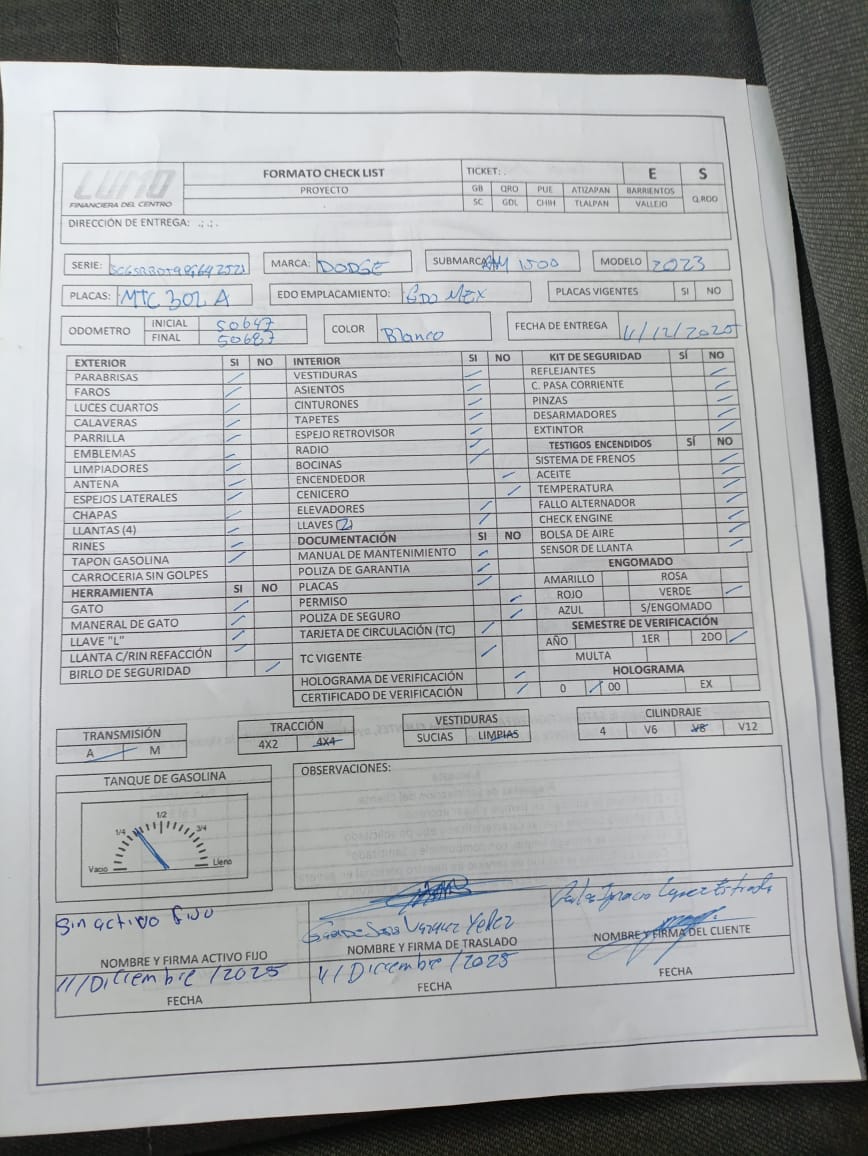 LUMO
FINANCIERA DEL CENTRO
FORMATO CHECK LIST
PROYECTO
TICKET: .
E S
GB QRO PUE ATIZAPAN BARRIENTOS
SC GDL CHIH TLALPAN VALLEJO Q.ROO
DIRECCIÓN DE ENTREGA: .; .; .
SERIE:
MARCA: DODGE
SUBMARCA RAM 1500
MODELO 2023
PLACAS: MTC 302 A
EDO EMPLACAMIENTO: EDO MEX
PLACAS VIGENTES SI NO
ODOMETRO
INICIAL 50647
FINAL 50687
COLOR Blanco
FECHA DE ENTREGA 11/12/2025
EXTERIOR SI NO
PARABRISAS
FAROS
LUCES CUARTOS
CALAVERAS
PARRILLA
EMBLEMAS
LIMPIADORES
ANTENA
ESPEJOS LATERALES
CHAPAS
LLANTAS (4)
RINES
TAPON GASOLINA
CARROCERIA SIN GOLPES
HERRAMIENTA SI NO
GATO
MANERAL DE GATO
LLAVE "L"
LLANTA C/RIN REFACCIÓN
BIRLO DE SEGURIDAD
INTERIOR SI NO
VESTIDURAS
ASIENTOS
CINTURONES
TAPETES
ESPEJO RETROVISOR
RADIO
BOCINAS
ENCENDEDOR
CENICERO
ELEVADORES
LLAVES (2)
DOCUMENTACIÓN SI NO
MANUAL DE MANTENIMIENTO
POLIZA DE GARANTIA
PLACAS
PERMISO
POLIZA DE SEGURO
TARJETA DE CIRCULACIÓN (TC)
TC VIGENTE
HOLOGRAMA DE VERIFICACIÓN
CERTIFICADO DE VERIFICACIÓN
KIT DE SEGURIDAD SÍ NO
REFLEJANTES
C. PASA CORRIENTE
PINZAS
DESARMADORES
EXTINTOR
TESTIGOS ENCENDIDOS SÍ NO
SISTEMA DE FRENOS
ACEITE
TEMPERATURA
FALLO ALTERNADOR
CHECK ENGINE
BOLSA DE AIRE
SENSOR DE LLANTA
ENGOMADO
AMARILLO ROSA
ROJO VERDE
AZUL S/ENGOMADO
SEMESTRE DE VERIFICACIÓN
AÑO 1ER 2DO
MULTA
HOLOGRAMA
0 00 EX
TRANSMISIÓN
A M
TRACCIÓN
4X2 4X4
VESTIDURAS
SUCIAS LIMPIAS
CILINDRAJE
4 V6 V8 V12
TANQUE DE GASOLINA
1/4 1/2 3/4
Vacio Lleno
OBSERVACIONES:
Sin activo fijo
NOMBRE Y FIRMA ACTIVO FIJO
11/Diciembre/2025
FECHA
Vazquez Yeliz
NOMBRE Y FIRMA DE TRASLADO
11/Diciembre/2025
FECHA
Carlos Ignacio Lopez Estrada
NOMBRE Y FIRMA DEL CLIENTE
FECHA